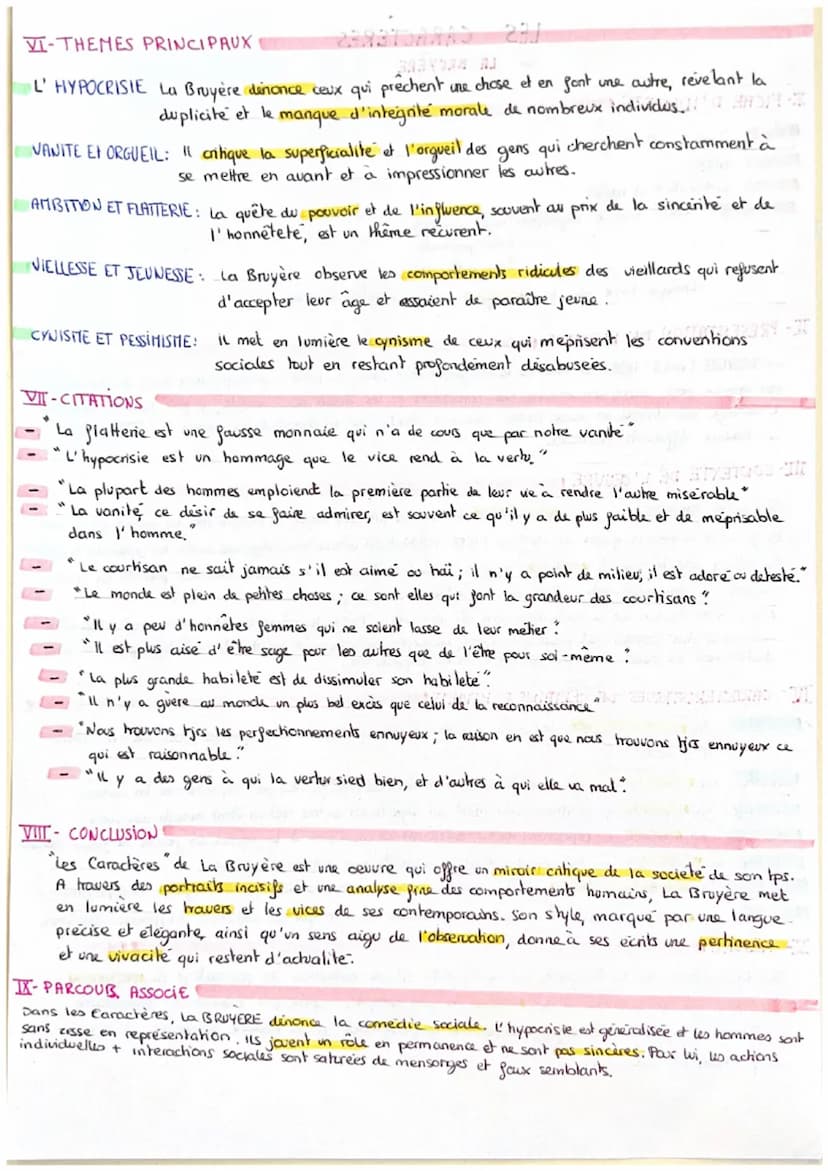 VI-THEMES PRINCIPAUX
L'HYPOCRISIE La Bruyère dénonce ceux qui prêchent une chose et en font une autre, révélant la
duplicité et le manque d'intégrité morale de nombreux individus.
VANITE Et ORGUEIL: Il critique la superficialité et l'orgueil des gens qui cherchent constamment à
se mettre en avant et à impressionner les autres.
AMBITION ET FLATTERIE: La quête du pouvoir et de l'influence, souvent au prix de la sincérité et de
l'honnêteté, est un thême récurent.
VIELLESSE ET JEUNESSE: La Bruyère observe les comportements ridicules des vieillards qui refusent
d'accepter leur âge et essaient de paraître jeune.
CYNISME ET PESSIMISME: il met en lumière le cynisme de ceux qui méprisent les conventions
sociales tout en restant profondément désabusées.
VII-CITATIONS
- "La flatterie est une fausse monnaie qui n'a de cours que par notre vanité"
- "L'hypocrisie est un hommage que le vice rend à la vertu"
- "La plupart des hommes emploient la première partie de leur vie à rendre l'autre misérable"
- "La vanité, ce désir de se faire admirer, est souvent ce qu'il y a de plus faible et de méprisable
dans l'homme."
- "Le courtisan ne sait jamais s'il est aimé ou haï; il n'y a point de milieu, il est adoré ou détesté."
- "Le monde est plein de petites choses; ce sont elles qui font la grandeur des courtisans".
- "Il y a peu d'honnêtes femmes qui ne soient lasse de leur métier".
- "Il est plus aisé d'être sage pour les autres que de l'être pour soi-même".
- "La plus grande habileté est de dissimuler son habileté".
- "Il n'y a guère au monde un plus bel excès que celui de la reconnaissance"
- "Nous trouvons tjrs les perfectionnements ennuyeux; la raison en est que nous trouvons tjrs ennuyeux ce
qui est raisonnable".
- "Il y a des gens à qui la vertu sied bien, et d'autres à qui elle va mal".
VIII- CONCLUSION
"Les Caractères" de La Bruyère est une oeuvre qui offre un miroir critique de la société de son tps.
A travers des portraits incisifs et une analyse fine des comportements humains, La Bruyère met
en lumière les travers et les vices de ses contemporains. Son style, marqué par une langue
précise et élégante, ainsi qu'un sens aigu de l'observation, donne à ses écrits une pertinence
et une vivacité qui restent d'actualité.
IX- PARCOURS ASSOCIE
Dans les Caractères, La BRUYERE dénonce la comédie sociale. L'hypocrisie est généralisée et les hommes sont
sans cesse en représentation. Ils jouent un rôle en permanence et ne sont pas sincères. Pour lui, les actions
individuelles + interactions sociales sont saturées de mensonges et faux semblants.